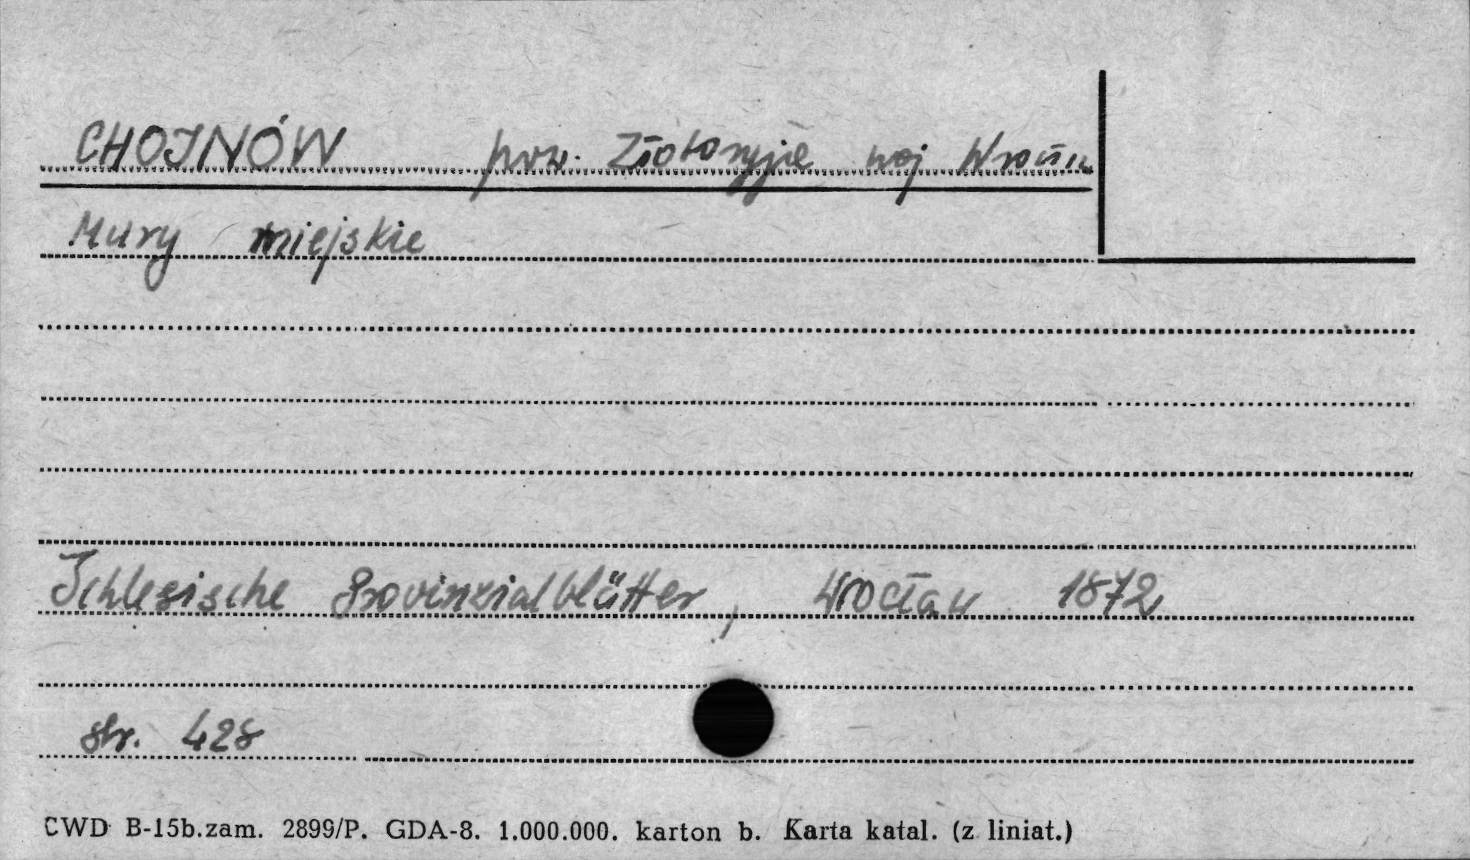 CHOJNÓW pow. Złotoryja woj Wrocław
Mury miejskie
Schlesische Provinzialblätter, Wrocław 1872
str. 428
CWD B-15b.zam. 2899/P. GDA-8. 1.000.000. karton b. Karta katal. (z liniat.)